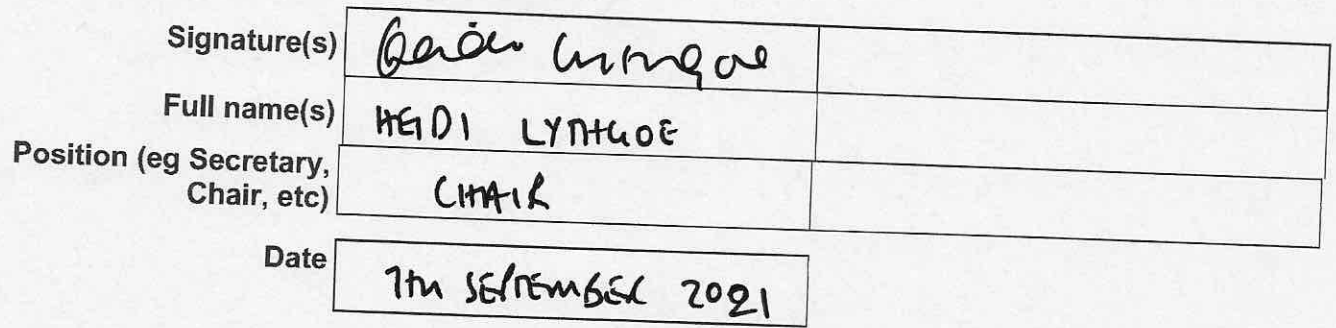 Signature(s)
Full name(s) HEIDI LYTHGOE
Position (eg Secretary,
Chair, etc) CHAIR
Date 7TH SEPTEMBER 2021